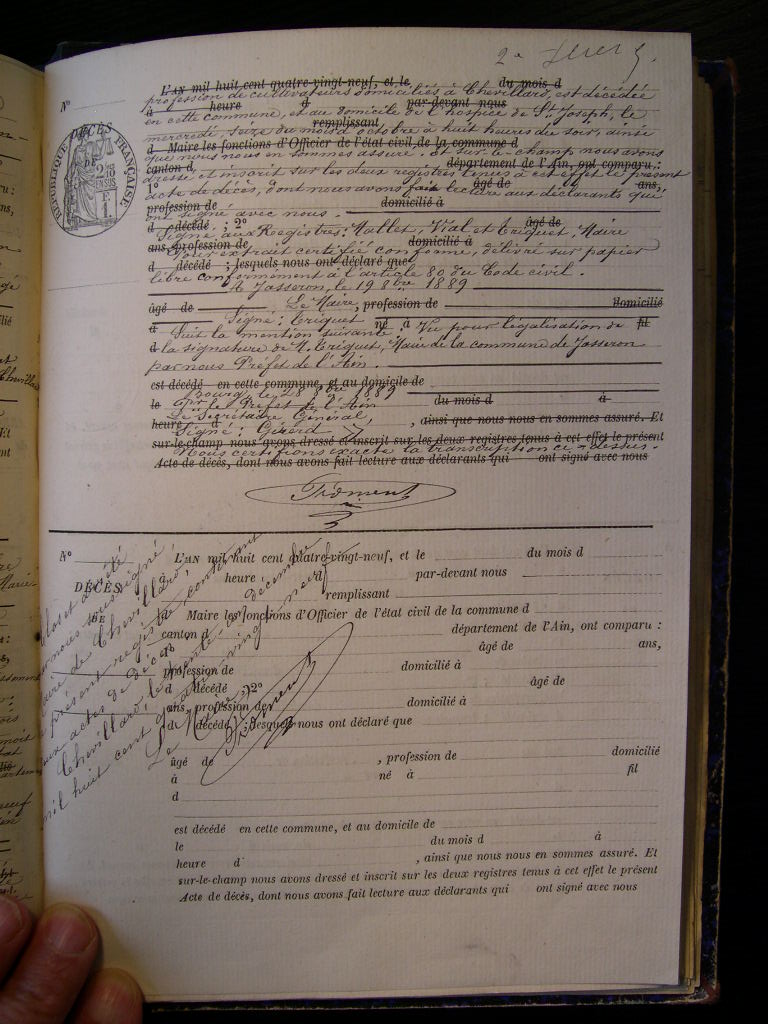 2e
N°
L'AN mil huit cent quatre-vingt-neuf, et le du mois d
profession de cultivateurs domiciliés à Chevillard, est décédée
à heure d par-devant nous
en cette commune, et au domicile de l'hospice de St Joseph, le
remplissant
mercredi, seize du mois d'octobre à huit heures du soir, ainsi
d Maire les fonctions d'Officier de l'état civil de la commune d
que nous nous en sommes assuré. Et sur-le-champ nous avons
canton d département de l'Ain, ont comparu :
dressé et inscrit sur les deux registres tenus à cet effet le présent
1° âgé de ans,
acte de décès, dont nous avons fait lecture aux déclarants qui
profession de domicilié à
ont signé avec nous.
d décédé ; 2° âgé de
Signé aux Registres: Mallet, Vial et Criquet, Maire
ans, profession de domicilié à
Pour extrait certifié conforme, délivré sur papier
d décédé ; lesquels nous ont déclaré que
libre conformément à l'article 80 du Code civil.
A Jasseron, le 19 8bre 1889
âgé de Le Maire, profession de domicilié
à Signé: Criquet né à fil
Suit la mention suivante: Vu pour légalisation de
d la signature de M. Criquet, Maire de la commune de Jasseron
par nous Préfet de l'Ain.
est décédé en cette commune, et au domicile de
Bourg, le 28 8bre 1889
le du mois d à
Pr le Préfet de l'Ain
Le Secrétaire Général,
heure d , ainsi que nous nous en sommes assuré. Et
Signé: Girerd
sur-le-champ nous avons dressé et inscrit sur les deux registres tenus à cet effet le présent
Nous certifions exacte la transcription ci-dessus.
Acte de décès, dont nous avons fait lecture aux déclarants qui ont signé avec nous
Froment
RÉPUBLIQUE FRANÇAISE
DÉCÈS
N°
DÉCÈS
DE
L'AN mil huit cent quatre-vingt-neuf, et le du mois d
à heure d par-devant nous
remplissant
d Maire les fonctions d'Officier de l'état civil de la commune d
canton d département de l'Ain, ont comparu :
1° âgé de ans,
profession de domicilié à
d décédé ; 2° âgé de
ans, profession de domicilié à
d décédé ; lesquels nous ont déclaré que
âgé de , profession de domicilié
à né à fil
d
est décédé en cette commune, et au domicile de
le du mois d à
heure d , ainsi que nous nous en sommes assuré. Et
sur-le-champ nous avons dressé et inscrit sur les deux registres tenus à cet effet le présent
Acte de décès, dont nous avons fait lecture aux déclarants qui ont signé avec nous
Clos et arrêté
par nous soussigné
Maire de Chevillard,
le présent registre contenant
aux actes de décès
Chevillard, le trente un décembre
mil huit cent quatre vingt neuf
Le Maire,
Froment